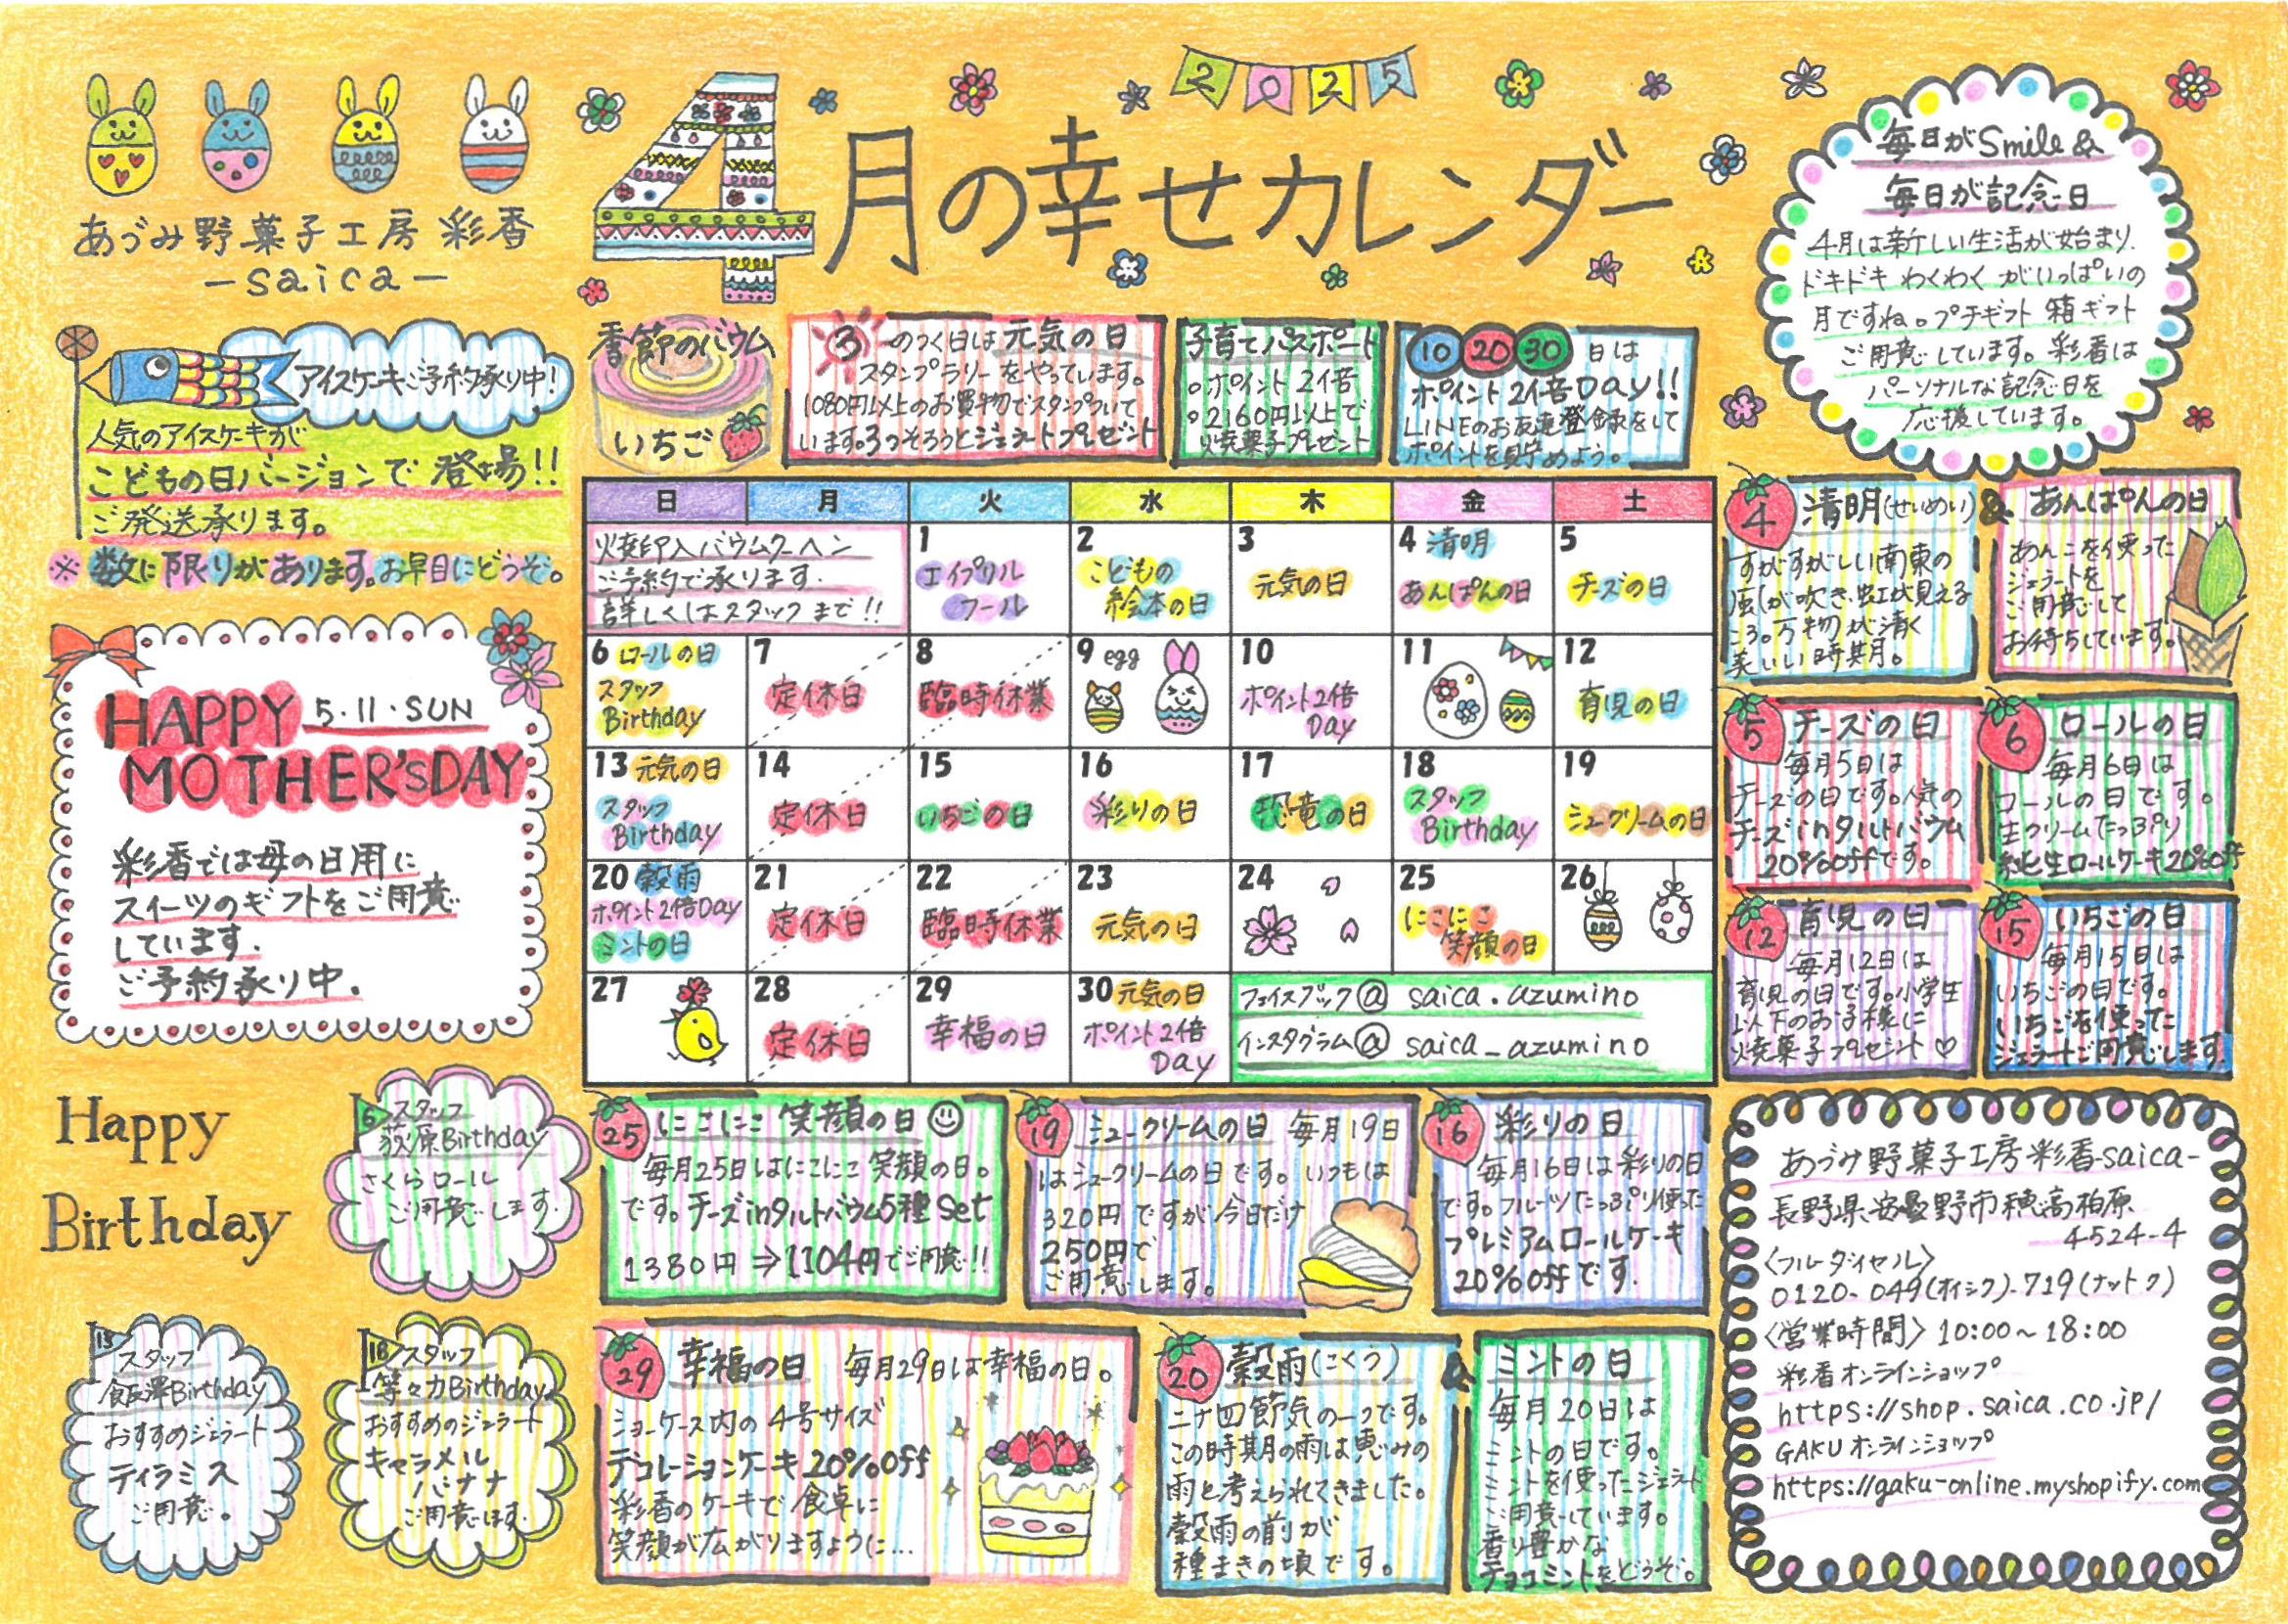 2025
4月の幸せカレンダー
あづみ野菓子工房 彩香
-saica-
毎日がSmile&
毎日が記念日
4月は新しい生活が始まり、
ドキドキ わくわく がいっぱいの
月ですね。プチギフト 箱ギフト
ご用意しています。彩香は
パーソナルな記念日を
応援しています。
アイスケーキご予約承り中!
人気のアイスケーキが
こどもの日バージョンで 登場!!
ご発送承ります。
※数に限りがあります。お早目にどうぞ。
季節のバウム
いちご
3のつく日は元気の日
スタンプラリーをやっています。
1080円以上のお買物でスタンプついて
います。3つそろうとジェラートプレゼント
子育てパスポート
。ポイント2倍
。2160円以上で
焼菓子プレゼント
10 20 30 日は
ポイント2倍Day!!
LINEのお友達登録をして
ポイントを貯めよう。
日 月 火 水 木 金 土
焼印入バウムクーヘン
ご予約で承ります.
詳しくはスタッフまで!!
1
エイプリル
フール
2
こどもの
絵本の日
3
元気の日
4 清明
あんぱんの日
5
チーズの日
6 ロールの日
スタッフ
Birthday
7
定休日
8
臨時休業
9 egg
10
ポイント2倍
Day
11
12
育児の日
13 元気の日
スタッフ
Birthday
14
定休日
15
いちごの日
16
彩りの日
17
恐竜の日
18
スタッフ
Birthday
19
シュークリームの日
20 穀雨
ポイント2倍Day
ミントの日
21
定休日
22
臨時休業
23
元気の日
24
25
にこにこ
笑顔の日
26
27
28
定休日
29
幸福の日
30 元気の日
ポイント2倍
Day
フェイスブック@ saica.azumino
インスタグラム@ saica_azumino
4 清明(せいめい)
すがすがしい南東の
風が吹き、虹が見える
ころ。万物が清く
美しい時期。
& あんぱんの日
あんこを使った
ジェラートを
ご用意して
お待ちしています。
5 チーズの日
毎月5日は
チーズの日です。人気の
チーズinタルトバウム
20%offです。
6 ロールの日
毎月6日は
ロールの日です。
生クリームたっぷり
純生ロールケーキ20%off
12 育児の日
毎月12日は
育児の日です。小学生
以下のお子様に
焼菓子プレゼント♡
15 いちごの日
毎月15日は
いちごの日です。
いちごを使った
ジェラートご用意します.
HAPPY 5.11.SUN
MOTHER'S DAY
彩香では母の日用に
スイーツのギフトをご用意
しています.
ご予約承り中.
Happy
Birthday
6 スタッフ
荻原Birthday
さくらロール
ご用意します.
13 スタッフ
飯澤Birthday
おすすめのジェラート
ティラミス
ご用意。
18 スタッフ
等々力Birthday
おすすめのジェラート
キャラメル
バナナ
ご用意します.
25 にこにこ 笑顔の日
毎月25日はにこにこ 笑顔の日。
です。チーズinタルトバウム5種 Set
1380円⇒1104円でご用意!!
19 シュークリームの日 毎月19日
はシュークリームの日です。いつもは
320円ですが今日だけ
250円で
ご用意します。
16 彩りの日
毎月16日は彩りの日
です。フルーツたっぷり使った
プレミアムロールケーキ
20%offです.
29 幸福の日 毎月29日は幸福の日。
ショーケース内の 4号サイズ
デコレーションケーキ20%off
彩香のケーキで 食卓に
笑顔が広がりますように…
20 穀雨(こくう)
二十四節気の一つです。
この時期の雨は恵みの
雨と考えられてきました。
穀雨の前が
種まきの頃です。
& ミントの日
毎月20日は
ミントの日です。
ミントを使ったジェラート
ご用意しています。
香り豊かな
チョコミントをどうぞ。
あづみ野菓子工房彩香-saica-
長野県安曇野市穂高柏原
4524-4
〈フリーダイヤル〉
0120-049(オイシク)-719(ナットク)
〈営業時間〉10:00~18:00
彩香オンラインショップ
https://shop.saica.co.jp/
GAKUオンラインショップ
https://gaku-online.myshopify.com